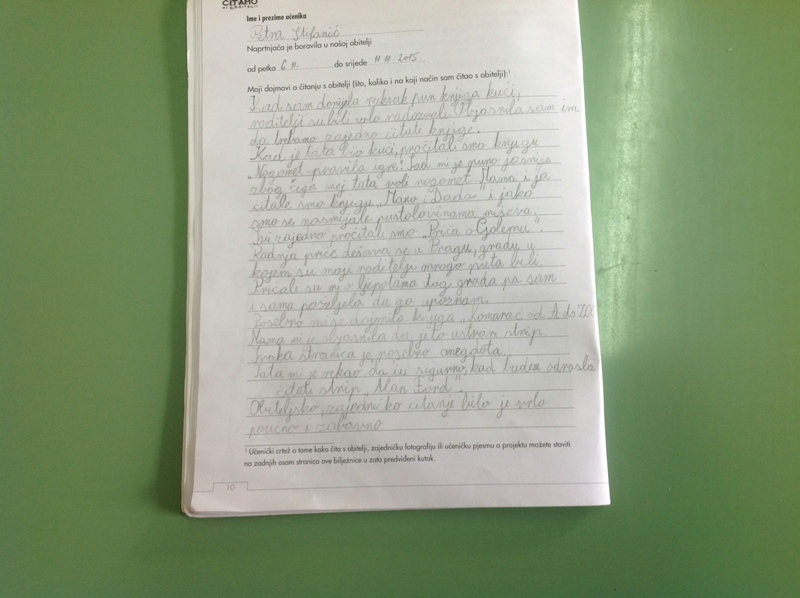 ČITAMO
Ime i prezime učenika
Petra Štefanić
Naprtnjača je boravila u našoj obitelji
od petka 6. 11. do srijede 11. 11. 2015.
Moji dojmovi o čitanju s obitelji (što, koliko i na koji način sam čitao s obitelji):¹
Kad sam donijela ruksak pun knjiga kući,
roditelji su bili vrlo radoznali. Objasnila sam im
da trebamo zajedno čitati knjige.
Kad je tata bio kući, pročitali smo knjigu
„Nogomet pravila igre". Sad mi je puno jasnije
zbog čega moj tata voli nogomet. Mama i ja
čitale smo knjigu „Mano i Dado" i jako
smo se nasmijale pustolovinama miševa.
Svi zajedno pročitali smo „Priča o Golemu".
Radnja priče dešava se u Pragu, gradu u
kojem su moji roditelji mnogo puta bili.
Pričali su mi o ljepotama tog grada pa sam
i sama poželjela da ga upoznam.
Posebno mi se dojmila knjiga „Komarac od A do
Mama mi je objasnila da je to ustvari strip.
Svaka stranica je posebno anegdota.
Tata mi je rekao da ću sigurno, kad budem odrasla
čitati strip „Alan Ford".
Obiteljsko, zajedničko čitanje bilo je vrlo
poučno i zabavno
¹ Učenički crtež o tome kako čita s obitelji, zajedničku fotografiju ili učeničku pjesmu o projektu možete staviti
na zadnjih osam stranica ove bilježnice u zato predviđeni kutak.
10